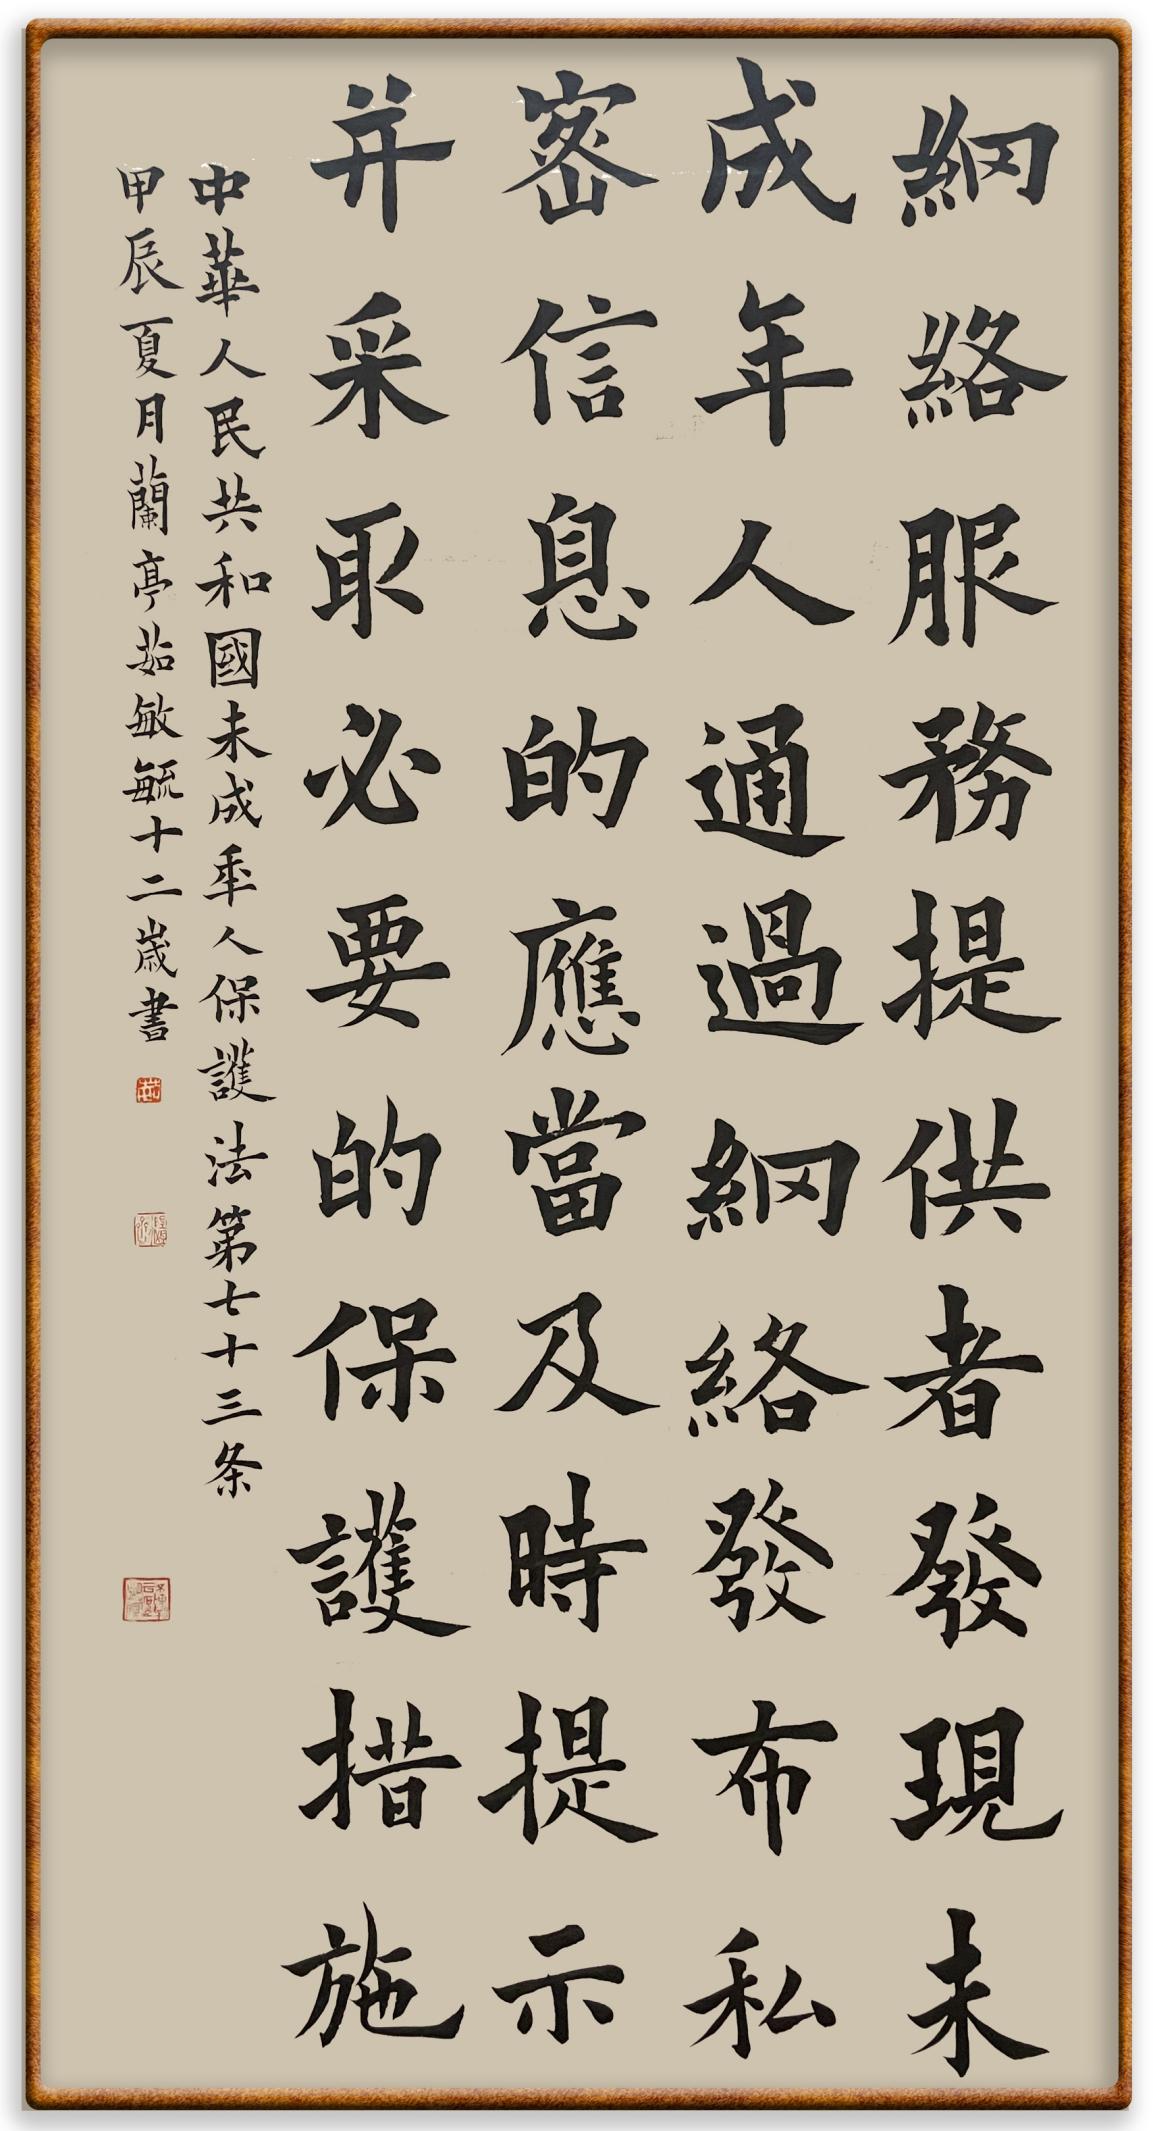 網絡服務提供者發現未
成年人通過網絡發布私
密信息的應當及時提示
并采取必要的保護措施
中華人民共和國未成年人保護法第七十三条
甲辰夏月蘭亭茹敏毓十二歲書